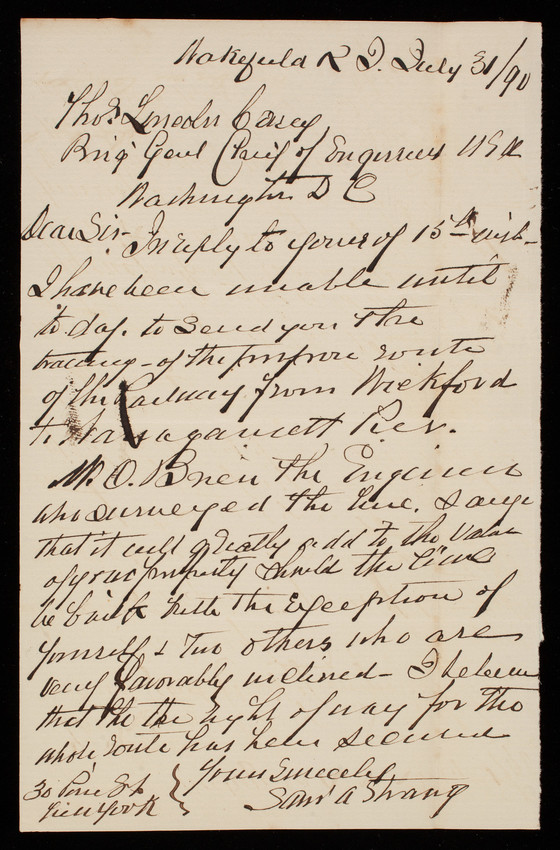 Wakefield R I. July 31/90
Thos. Lincoln Casey
Brig Genl Chief of Engineers U S A
Washington D C
Dear Sir- In reply to yours of 15th inst-
I have been unable until
to day. to send you the
tracing - of the route
of the Railway from Wickford
to Narragansett Pier.
Mr. O. Brien the Engineer
who surveyed the line. Says
that it will greatly add to the value
of your property should the line
be built With the exception of
yourself & two others who are
very favorably inclined - I believe
that the the right of way for the
whole route has been secured
Yours Sincerely
Saml A Strang
30 Pine St
New York